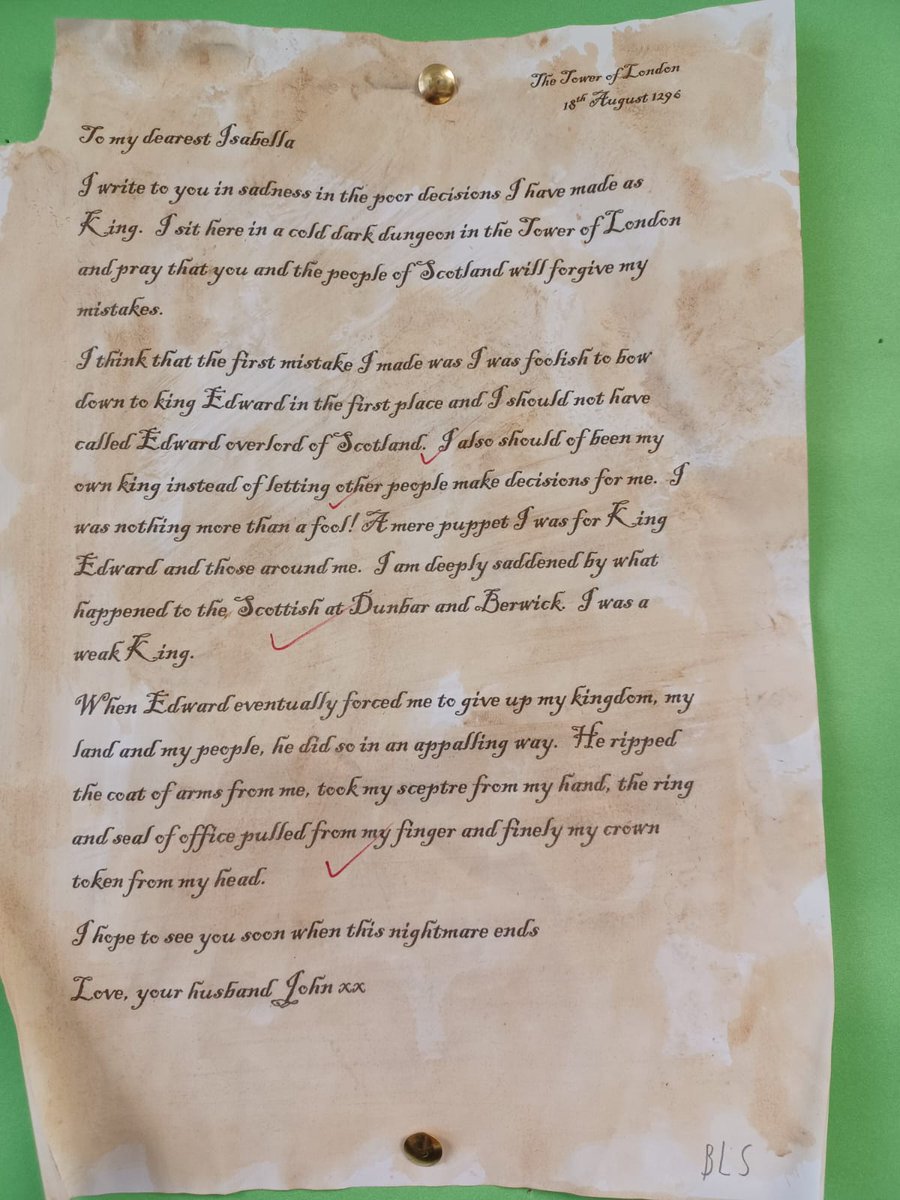 The Tower of London
18th August 1296
To my dearest Isabella
I write to you in sadness in the poor decisions I have made as
King. I sit here in a cold dark dungeon in the Tower of London
and pray that you and the people of Scotland will forgive my
mistakes.
I think that the first mistake I made was I was foolish to bow
down to king Edward in the first place and I should not have
called Edward overlord of Scotland. I also should of been my
own king instead of letting other people make decisions for me. I
was nothing more than a fool! A mere puppet I was for King
Edward and those around me. I am deeply saddened by what
happened to the Scottish at Dunbar and Berwick. I was a
weak King.
When Edward eventually forced me to give up my kingdom, my
land and my people, he did so in an appalling way. He ripped
the coat of arms from me, took my sceptre from my hand, the ring
and seal of office pulled from my finger and finely my crown
token from my head.
I hope to see you soon when this nightmare ends
Love, your husband John xx
BLS